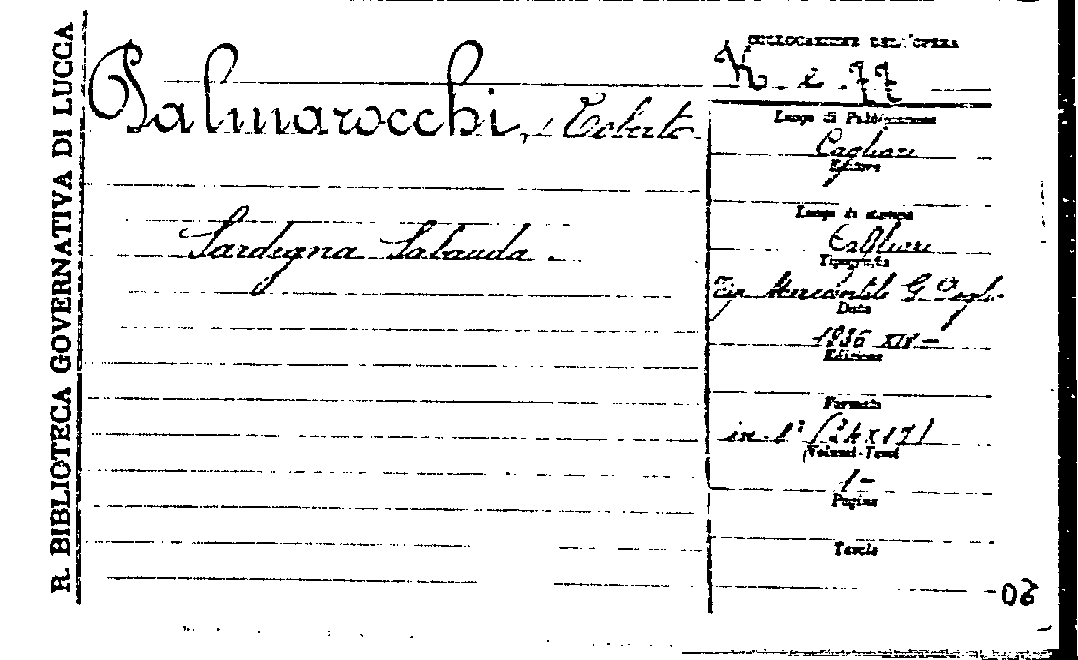 R. BIBLIOTECA GOVERNATIVA DI LUCCA
Palmarocchi, Roberto
Sardegna Sabauda.
COLLOCAZIONE DELL'OPERA
Luogo di Pubblicazione
Cagliari
Editore
Luogo di stampa
Cagliari
Tipografia
Tip. Mercantile G.
Data
1936 XIV -
Edizione
Formato
in 8° (24x17)
Volumi-Tomi
1 -
Pagine
Tavole